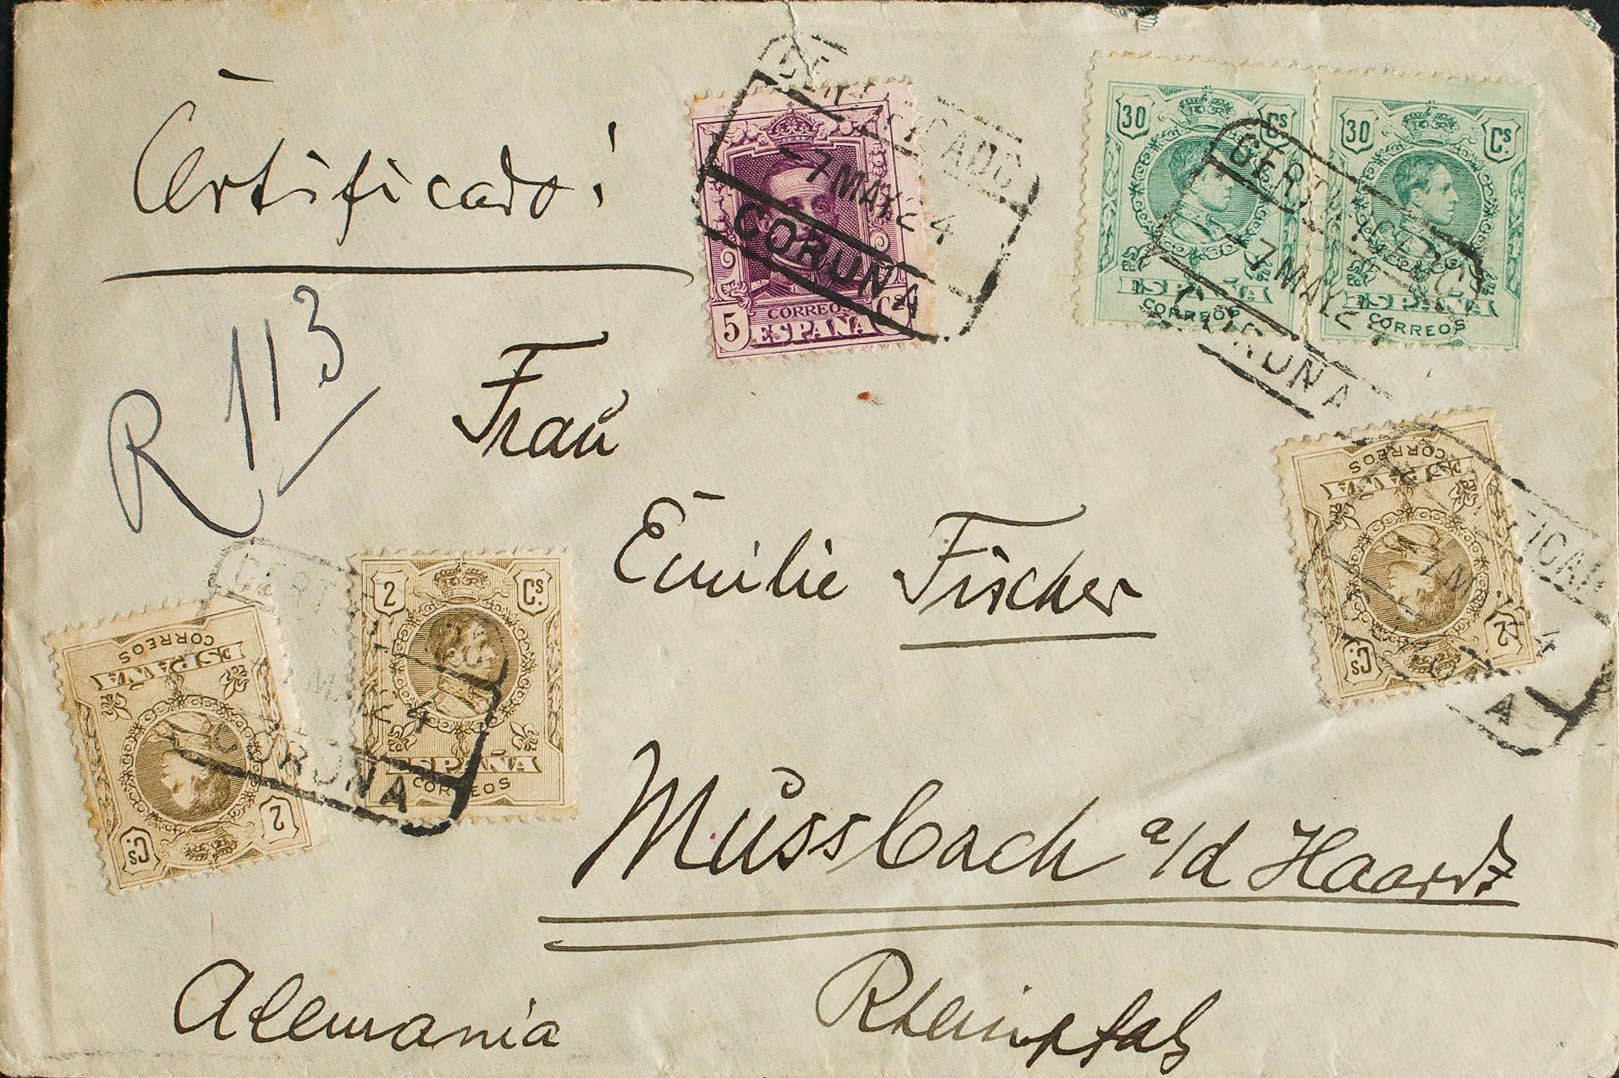 Certificado!
CERTIFICADO
-7 MAY.24
CORUÑA
5 Cs
CORREOS
ESPAÑA
30 Cs
ESPAÑA
CORREOS
30 Cs
ESPAÑA
CORREOS
CERTIFICADO
-7 MAY.24
CORUÑA
R 113
Frau
Emilie Fischer
2 Cs.
ESPAÑA
CORREOS
CERTIFICADO
7 MAY.24
CORUÑA
2 Cs.
ESPAÑA
CORREOS
2 Cs.
ESPAÑA
CORREOS
CERTIFICADO
CORUÑA
Mussbach a/d Haardt
Alemania
Rheinpfalz